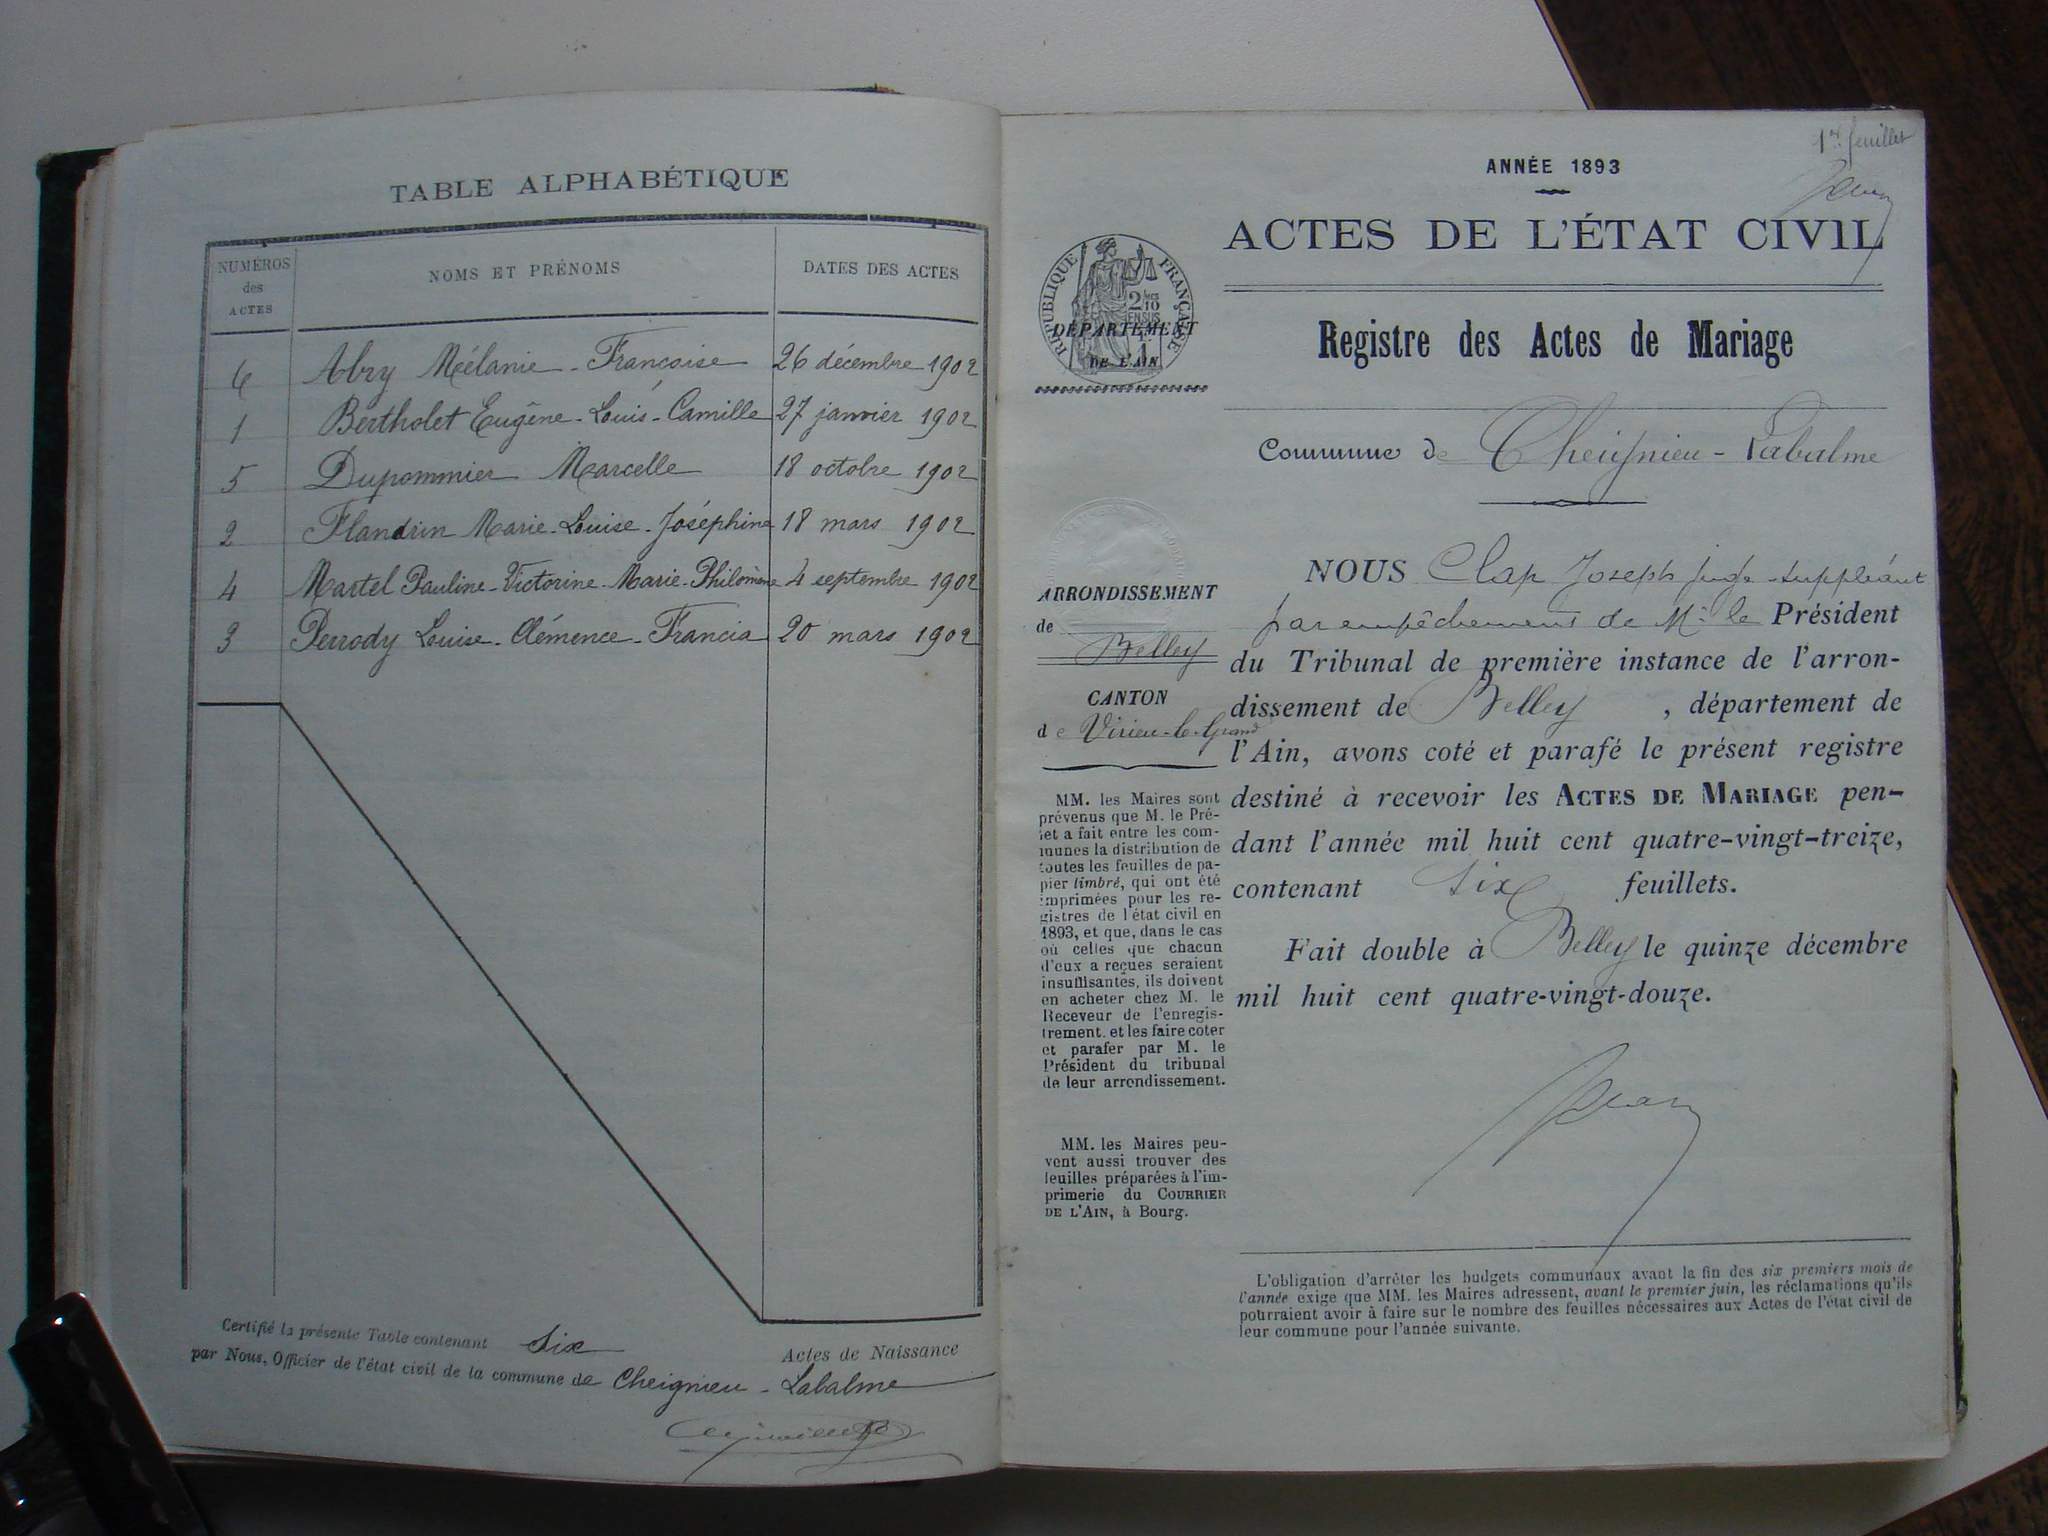 TABLE ALPHABÉTIQUE
NUMÉROS des ACTES
NOMS ET PRÉNOMS
DATES DES ACTES
6 Abry Mélanie - Françoise 26 décembre 1902
1 Bertholet Eugène - Louis - Camille 27 janvier 1902
5 Dupommier Marcelle 18 octobre 1902
2 Flandrin Marie - Louise - Joséphine 18 mars 1902
4 Martel Pauline - Victorine - Marie - Philomène 4 septembre 1902
3 Perrody Louise - Clémence - Francia 20 mars 1902
Certifié la présente Table contenant six Actes de Naissance
par Nous, Officier de l'état civil de la commune de Cheignieu - Labalme
1er feuillet
ANNÉE 1893
ACTES DE L'ÉTAT CIVIL
RÉPUBLIQUE FRANÇAISE
2/10 EN SUS
DÉPARTEMENT
DE L'AIN
Registre des Actes de Mariage
Commune de Cheignieu - Labalme
ARRONDISSEMENT
de
Belley
CANTON
de Virieu-le-Grand
MM. les Maires sont
prévenus que M. le Pré-
fet a fait entre les com-
munes la distribution de
toutes les feuilles de pa-
pier timbré, qui ont été
imprimées pour les re-
gistres de l'état civil en
1893, et que, dans le cas
où celles que chacun
d'eux a reçues seraient
insuffisantes, ils doivent
en acheter chez M. le
Receveur de l'enregis-
trement. et les faire coter
et parafer par M. le
Président du tribunal
de leur arrondissement.
MM. les Maires peu-
vent aussi trouver des
feuilles préparées à l'im-
primerie du COURRIER
DE L'AIN, à Bourg.
NOUS Clap Joseph juge suppléant
par empêchement de Mr le Président
du Tribunal de première instance de l'arron-
dissement de Belley , département de
l'Ain, avons coté et parafé le présent registre
destiné à recevoir les ACTES DE MARIAGE pen-
dant l'année mil huit cent quatre-vingt-treize,
contenant six feuillets.
Fait double à Belley le quinze décembre
mil huit cent quatre-vingt-douze.
L'obligation d'arrêter les budgets communaux avant la fin des six premiers mois de
l'année exige que MM. les Maires adressent, avant le premier juin, les réclamations qu'ils
pourraient avoir à faire sur le nombre des feuilles nécessaires aux Actes de l'état civil de
leur commune pour l'année suivante.